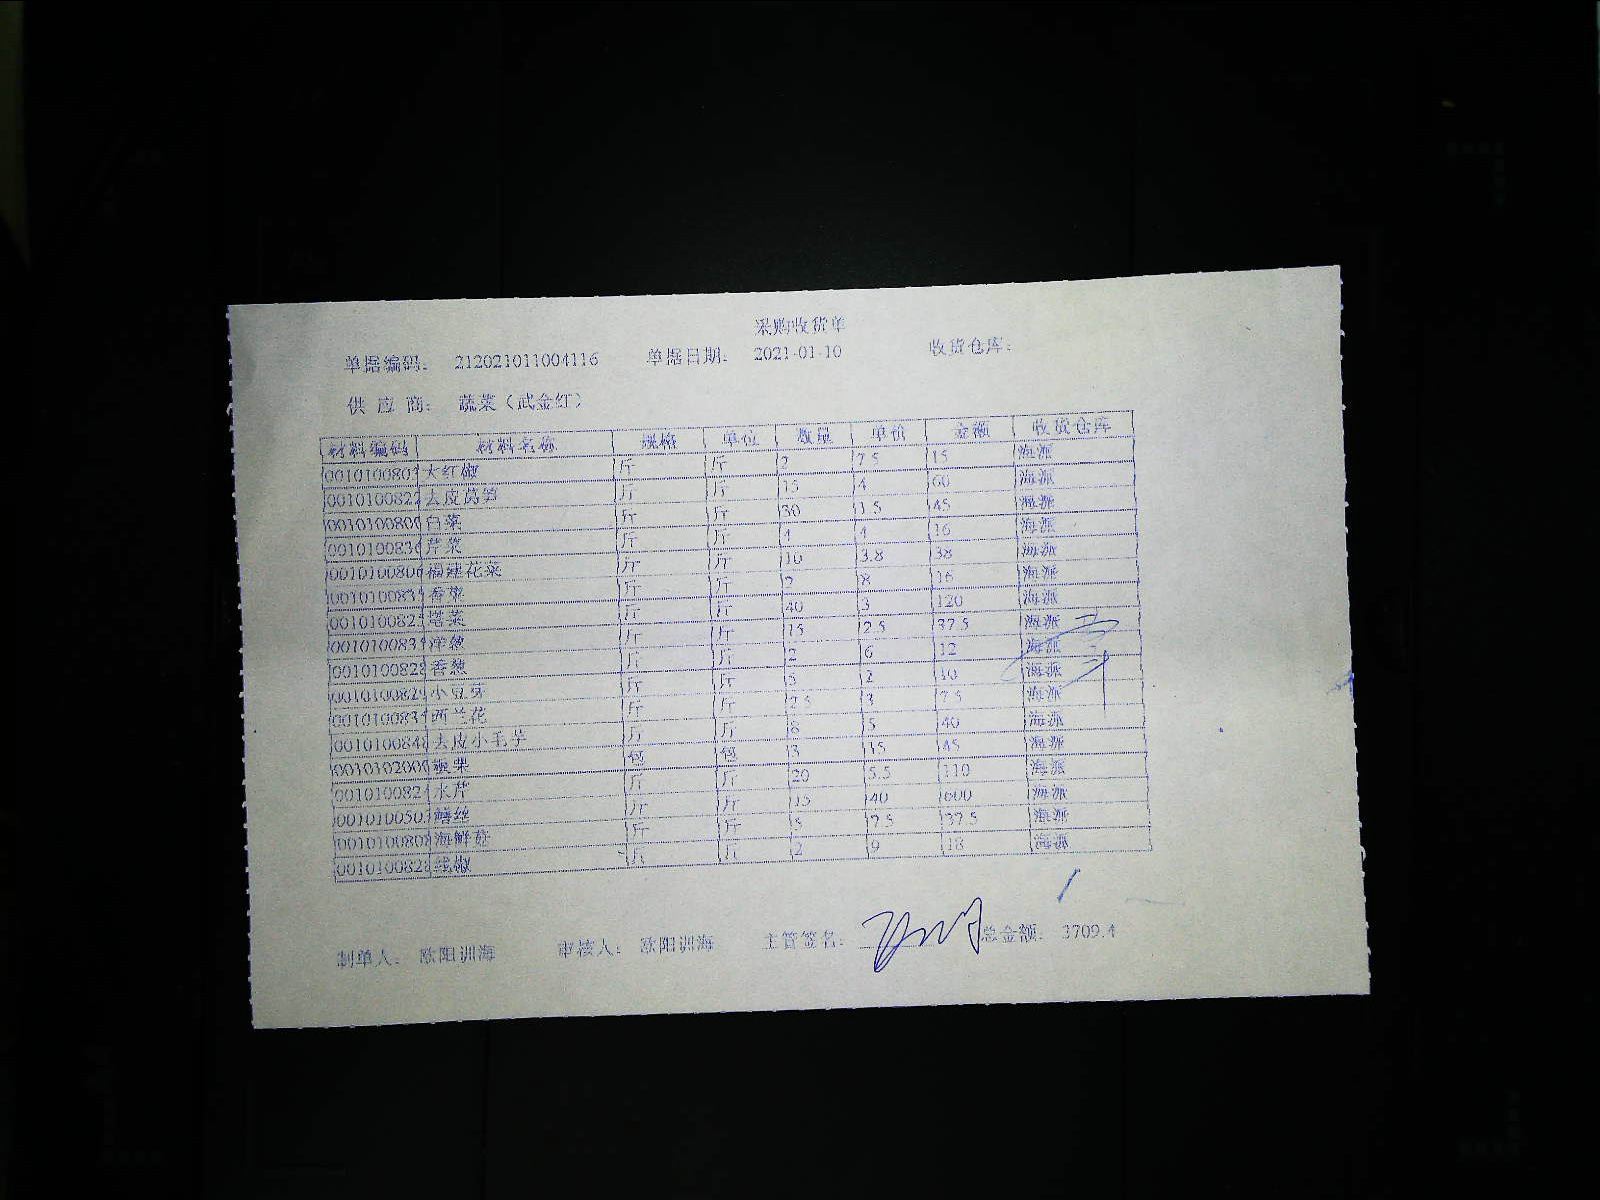 采购收货单
单据编码: 212021011004116 单据日期: 2021-01-10 收货仓库:
供 应 商: 蔬菜（武金红）
材料编码 材料名称 规格 单位 数量 单价 金额 收货仓库
001010080 大红椒 斤 斤 2 7.5 15 海派
0010100822 去皮莴笋 斤 斤 15 4 60 海派
001010080 白菜 斤 斤 30 1.5 45 海派
001010083 芹菜 斤 斤 4 4 16 海派
001010080 福建花菜 斤 斤 10 3.8 38 海派
001010083 香菜 斤 斤 2 8 16 海派
001010082 塔菜 斤 斤 40 3 120 海派
001010083 洋葱 斤 斤 15 2.5 37.5 海派
001010082 香葱 斤 斤 2 6 12 海派
001010082 小豆芽 斤 斤 5 2 10 海派
001010083 西兰花 斤 斤 2.5 3 7.5 海派
001010084 去皮小毛芋 斤 斤 8 5 40 海派
001010200 板栗 包 包 3 15 45 海派
001010082 水芹 斤 斤 20 5.5 110 海派
001010050 鳝丝 斤 斤 15 40 600 海派
001010080 海鲜菇 斤 斤 5 7.5 37.5 海派
001010082 线椒 斤 斤 2 9 18 海派
制单人: 欧阳训海 审核人: 欧阳训海 主管签名: 总金额: 3709.4